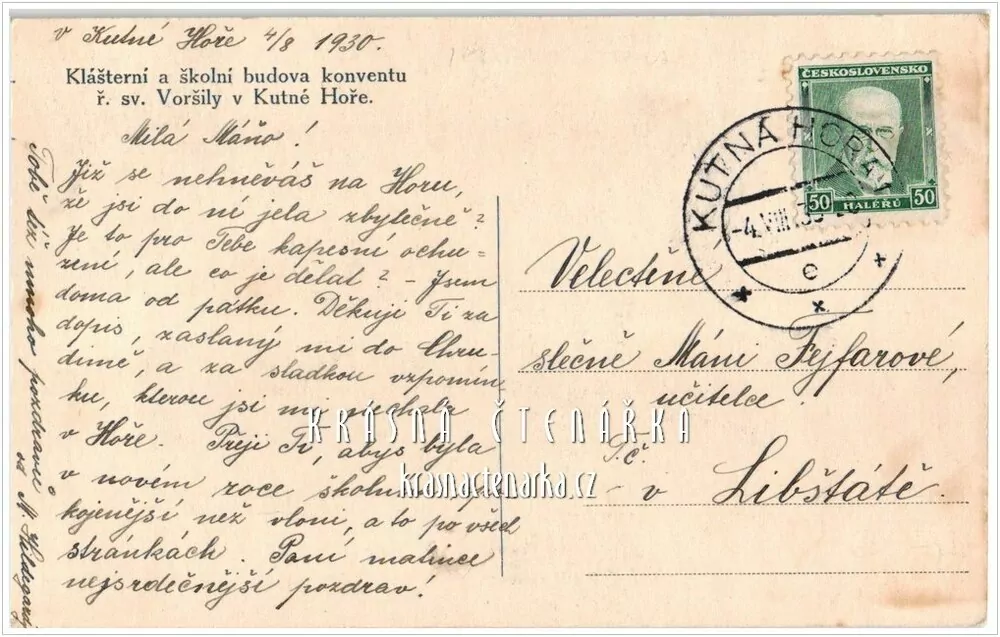 v Kutné Hoře 4/8 1930.
Klášterní a školní budova konventu
ř. sv. Voršily v Kutné Hoře.
Milá Máňo!
Již se nehněváš na Horu,
že jsi do ní jela zbytečně?
Je to pro Tebe kapesní ochu-
zení, ale co je dělat? – Jsem
doma od pátku. Děkuji Ti za
dopis, zaslaný mi do Chru-
dimě, a za sladkou vzpomín
ku, kterou jsi mi nechala
v Hoře. Přeji Ti, abys byla
v novém roce školním
kojenější než vloni, a to po všech
stránkách. Paní matince
nejsrdečnější pozdrav!
Tobě též mnoho pozdravů
od M. Hildegardy
ČESKOSLOVENSKO
50 HALÉŘŮ 50
KUTNÁ HORA
-4.VIII.30
e
Velectěné
slečně Máni Fejfarové,
učitelce
v Libštátě.
KRÁSNÁ ČTENÁŘKA
krasnactenarka.cz